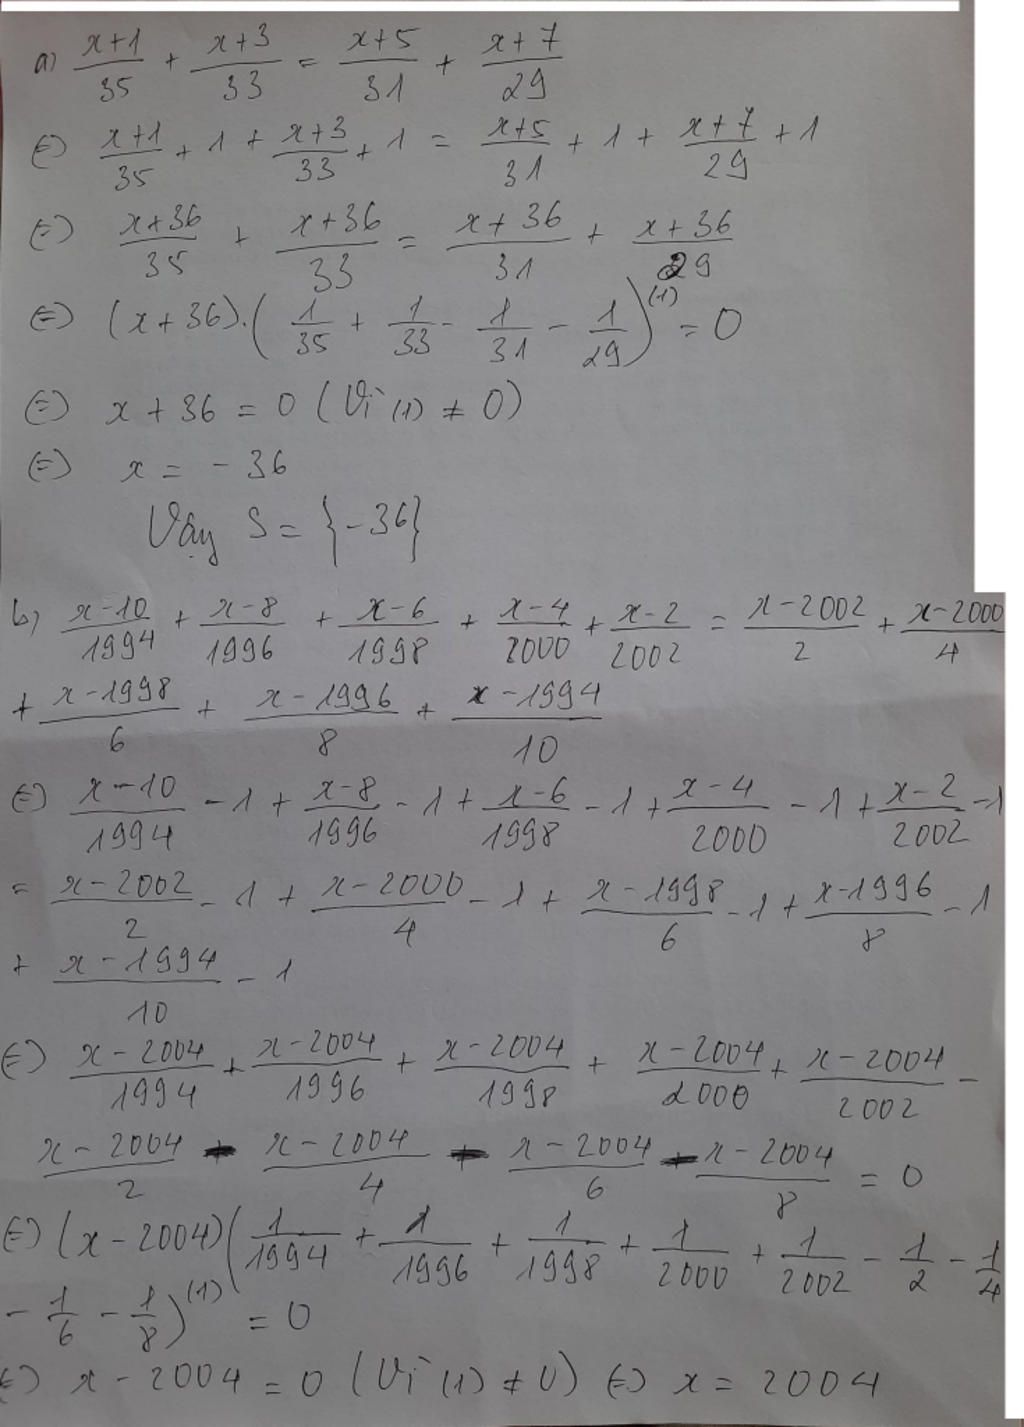 a) (x+1)/35 + (x+3)/33 = (x+5)/31 + (x+7)/29
(=) (x+1)/35 + 1 + (x+3)/33 + 1 = (x+5)/31 + 1 + (x+7)/29 + 1
(=) (x+36)/35 + (x+36)/33 = (x+36)/31 + (x+36)/29
(=) (x+36).(1/35 + 1/33 - 1/31 - 1/29)^(1) = 0
(=) x + 36 = 0 (Vì (1) ≠ 0)
(=) x = - 36
Vậy S = {-36}
b) (x-10)/1994 + (x-8)/1996 + (x-6)/1998 + (x-4)/2000 + (x-2)/2002 = (x-2002)/2 + (x-2000)/4
+ (x-1998)/6 + (x-1996)/8 + (x-1994)/10
(=) (x-10)/1994 - 1 + (x-8)/1996 - 1 + (x-6)/1998 - 1 + (x-4)/2000 - 1 + (x-2)/2002 - 1
= (x-2002)/2 - 1 + (x-2000)/4 - 1 + (x-1998)/6 - 1 + (x-1996)/8 - 1
+ (x-1994)/10 - 1
(=) (x-2004)/1994 + (x-2004)/1996 + (x-2004)/1998 + (x-2004)/2000 + (x-2004)/2002 -
(x-2004)/2 - (x-2004)/4 - (x-2004)/6 - (x-2004)/8 = 0
(=) (x-2004)(1/1994 + 1/1996 + 1/1998 + 1/2000 + 1/2002 - 1/2 - 1/4
- 1/6 - 1/8)^(1) = 0
(=) x - 2004 = 0 (Vì (1) ≠ 0) (=) x = 2004